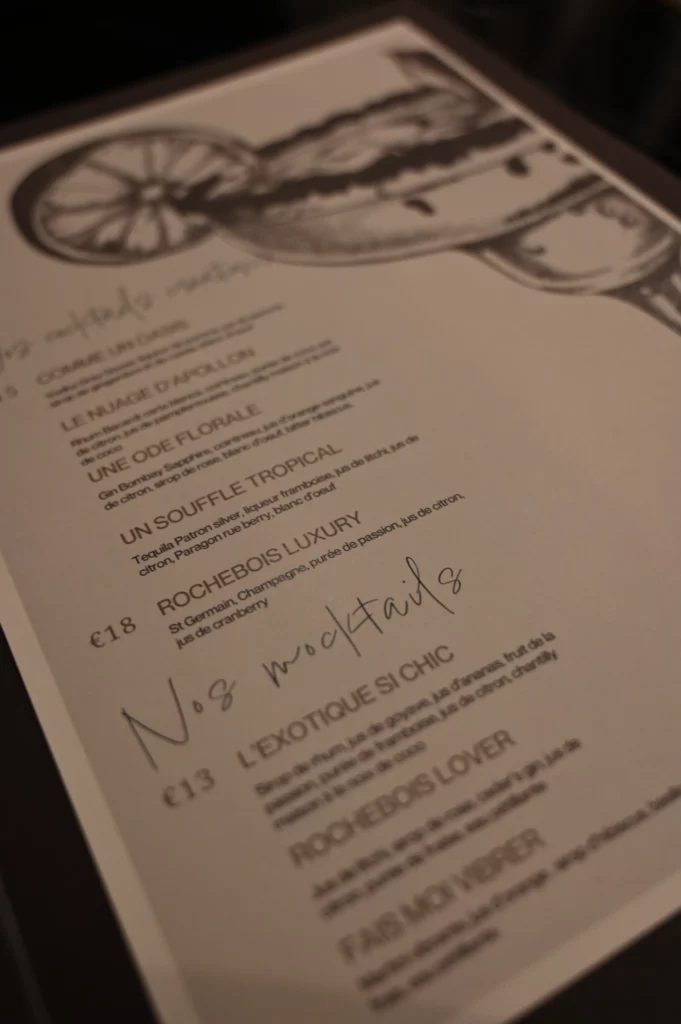 Nos cocktails
COMME UN OASIS
LE NUAGE D'APOLLON
Rhum Bacardi carta blanca, cointreau, purée de coco, jus
de citron, jus de pamplemousse, chantilly maison à la noix
de coco
UNE ODE FLORALE
Gin Bombay Sapphire, cointreau, jus d'orange sanguine, jus
de citron, sirop de rose, blanc d'oeuf, bitter hibiscus,
UN SOUFFLE TROPICAL
Tequila Patron silver, liqueur framboise, jus de litchi, jus de
citron, Paragon rue berry, blanc d'oeuf
ROCHEBOIS LUXURY
€18
St Germain, Champagne, purée de passion, jus de citron,
jus de cranberry
Nos mocktails
L'EXOTIQUE SI CHIC
€13
Sirop de rhum, jus de goyave, jus d'ananas, fruit de la
passion, purée de framboise, jus de citron, chantilly
maison à la noix de coco
ROCHEBOIS LOVER
Jus de litchi, sirop de rose, ceder's gin, jus de
citron, purée de fraise, eau pétillante
FAIS MOI VIBRER
jus d'orange, sirop d'hibiscus,
eau pétillante